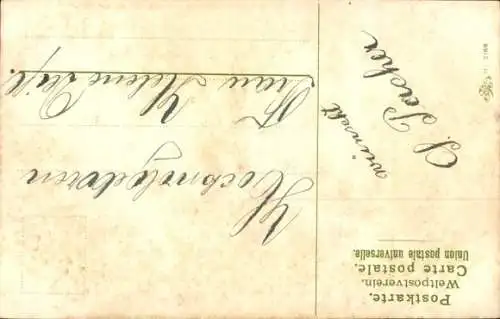 Postkarte.
Weltpostverein.
Carte postale.
Union postale universelle.
wünscht
Hochwolgeboren
Frau Helene